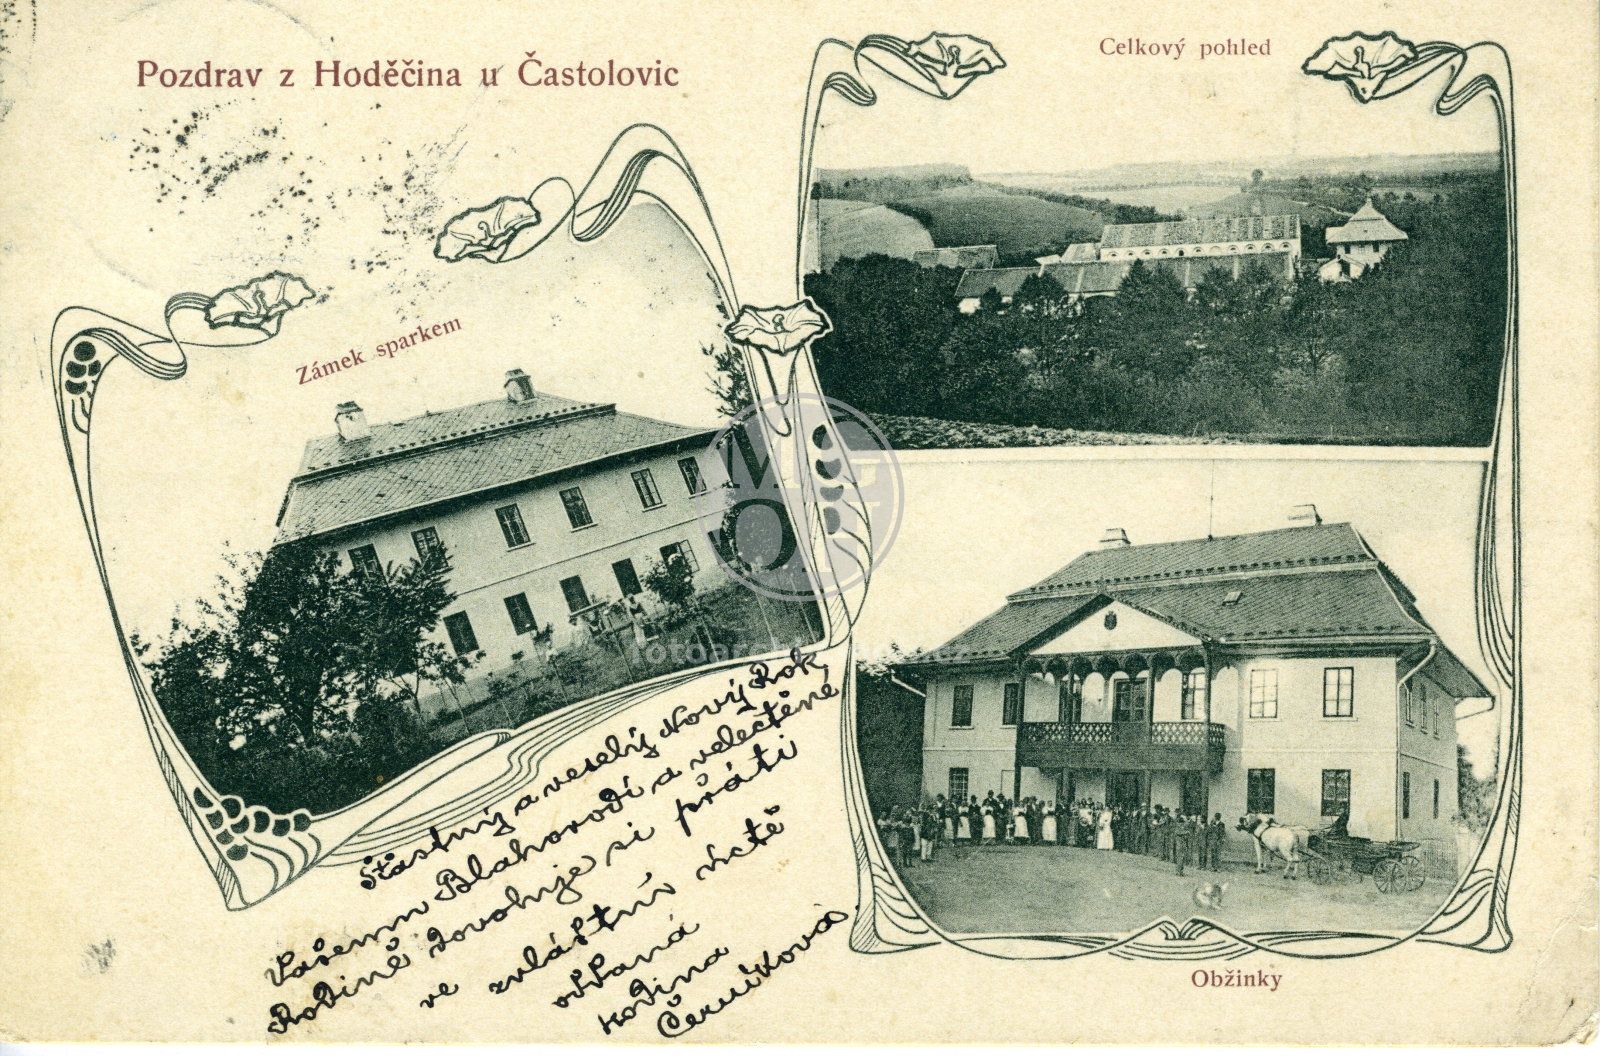 Pozdrav z Hoděčina u Častolovic
Celkový pohled
Zámek sparkem
Obžinky
Šťastný a veselý Nový Rok
Vašemu Blahorodí a velectěné
Rodině dovoluje si přáti
ve zvláštní úctě
oddaná
rodina
Černíková
MG
OH